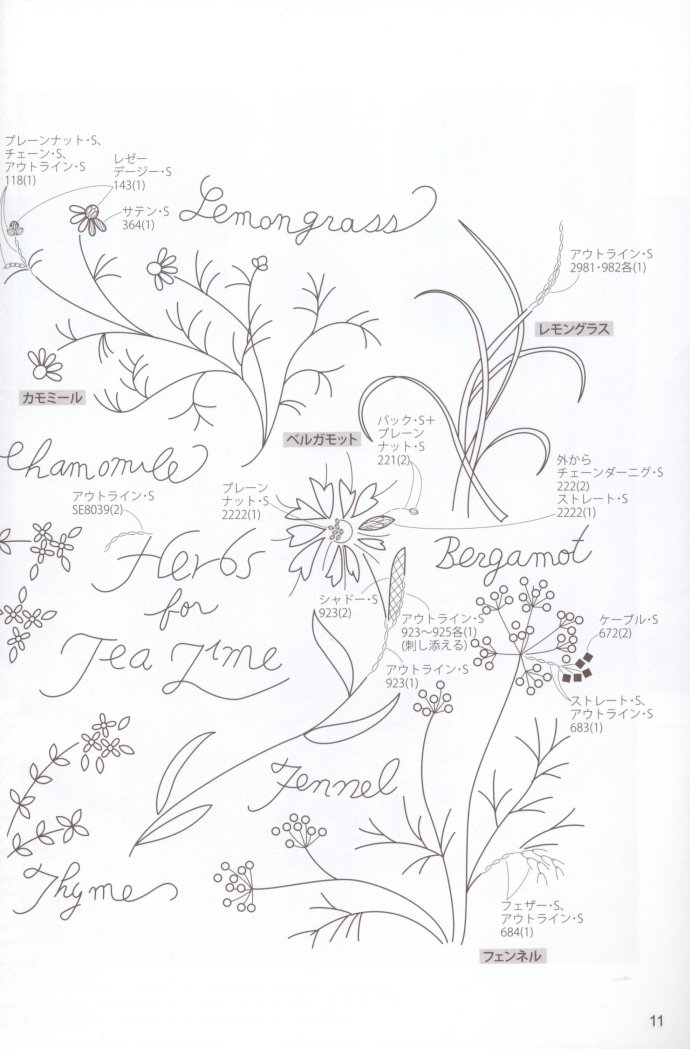 プレーンナット・S、
チェーン・S、
アウトライン・S
118(1)
レゼー
デージー・S
143(1)
サテン・S
364(1)
Lemongrass
アウトライン・S
2981・982各(1)
レモングラス
カモミール
ベルガモット
バック・S+
プレーン
ナット・S
221(2)
Chamomile
アウトライン・S
SE8039(2)
プレーン
ナット・S
2222(1)
外から
チェーンダーニグ・S
222(2)
ストレート・S
2222(1)
Bergamot
Herbs
for
Tea Time
シャドー・S
923(2)
アウトライン・S
923〜925各(1)
(刺し添える)
アウトライン・S
923(1)
ケーブル・S
672(2)
ストレート・S、
アウトライン・S
683(1)
Fennel
Thyme
フェザー・S、
アウトライン・S
684(1)
フェンネル
11